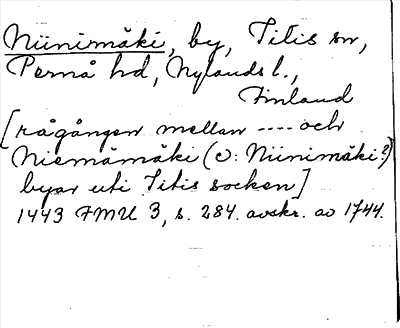 Niinimäki, by, Titis sn,
Pernå hd, Nylands l.,
Finland
[rågången mellan .... och
Niemämäki (ɔ: Niinimäki?)
byar uti Titis socken]
1443 FMU 3, s. 284. avskr. av 1744.